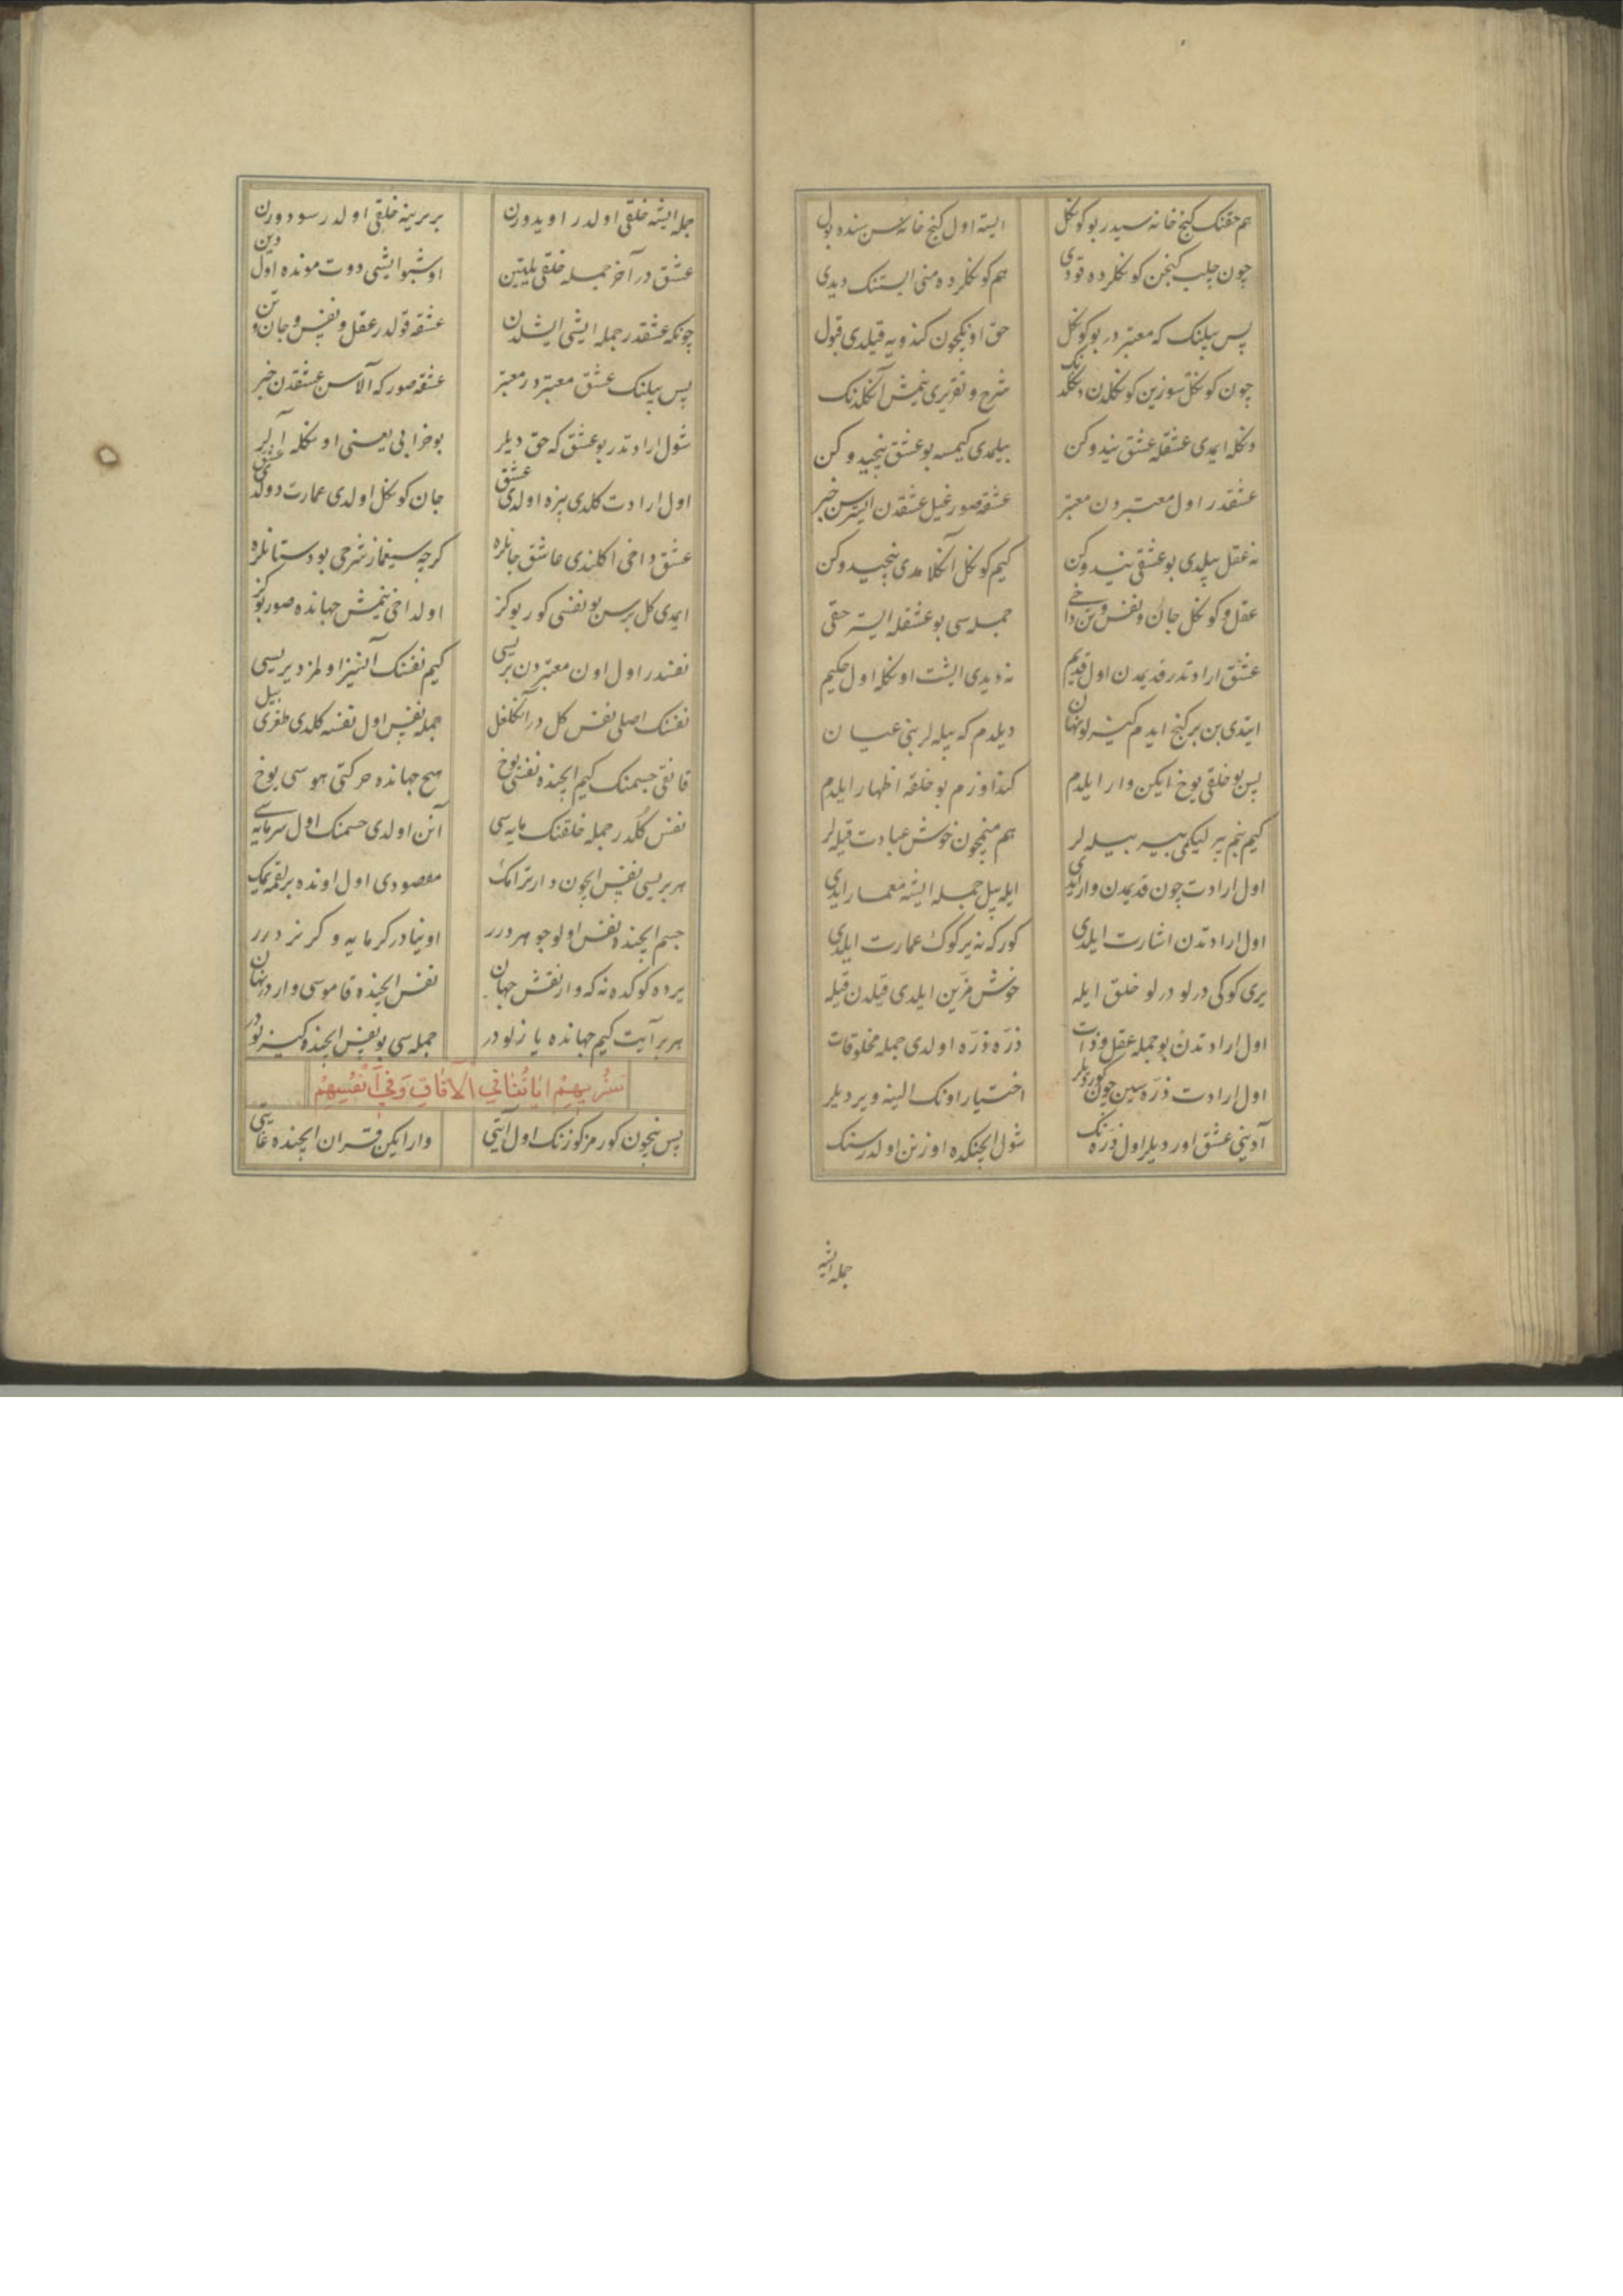 هم حقنک کنج خانه سیدر بو کوکل ایسته اول کنج خانه سن سنده بول
چون چلب کنجن کوکلرده قودی هم کوکلرده منی ایستنک دیدی
پس بیلنک که معتبر در بو کوکل حق اونکچون کندویه قیلدی قبول
چون کوکل سوزین کوکلدن دکلدنک شرح و تقریری نیمش آنکلدنک
دنکله ایمدی عشقله عشق نیدوکن بیلمدی کیمسه بو عشق نیجیدوکن
عشقدر اول معتبردن معتبر عشقه صورغیل عشقدن ایسترسن خبر
نه عقل بیلدی بو عشقی نیدوکن کیم کوکل آنکلامدی نیجیدوکن
عقل و کوکل جان و نفس و تن داخی جمله سی بو عشقله ایستر حقی
عشق ارادتدر قدیمدن اول قدیم نه دیدی ایشت اونکله اول حکیم
ایتدی بن بر کنج ایدم کیزلو نهان دیلدم که بیله لر بنی عیان
پس بو خلقی یوخ ایکن وار ایلدم کندوزم بو خلقه اظهار ایلدم
کیم بنم بیرلیکمی بیر بیله لر هم منمچون خوش عبادت قیله لر
اول ارادت چون قدیمدن وار ایدی ایله بیل جمله ایشه معمار ایدی
اول ارادتدن اشارت ایلدی کور که نه یر کوک عمارت ایلدی
یری کوکی درلو درلو خلق ایله خوش مزین ایلدی قیلدن قیله
اول ارادتدن بو جمله عقل و ذات ذره ذره اولدی جمله مخلوقات
اول ارادت ذره سین چون کوردیلر اختیار اونک الینه ویردیلر
آدینی عشق اوردیلر اول ذره نک شول ایچنکده اوزنن اولدرسنک
جمله ایشه
جمله ایشه خلقی اولدر اویدورن بربرینه خلقی اولدر سودورن
عشق در آخر جمله خلقی یلیتین اوشبو ایشی دوت مونده اول دین
چونکه عشقدر جمله ایشی ایشلدن عشقه قولدر عقل و نفس و جان و تن
پس بیلنک عشق معتبردر معتبر عشقه صور که آلاسن عشقدن خبر
شول ارادتدر بو عشق که حق دیلر بو خرابی یعنی اونکله
اول ارادت کلدی بیزه اولدی عشق جان کوکل اولدی عمارت دولدی عشق
عشق داخی اکلندی عاشق جانلره کرچه سیغماز شرحی بو دستانلره
ایمدی کل برسن بو نفسی کور بو کز اولداخی نیمش جهانده صور بو کز
نفسدر اول اون معتبردن بریسی کیم نفسنک آنسیز اولمز دیریسی
نفسنک اصلی نفس کل در آنکلغل جمله نفس اول نفسه کلدی طغری بیل
قانقی جسمنک کیم ایچنده نفسی یوخ هیچ جهانده حرکتی هوسی یوخ
نفس کلدر جمله خلقنک مایه سی آنن اولدی جسمنک اول سرمایه سی
هر بریسی نفس ایچون دارتر امک مقصودی اول اونده بر لقمه یمک
جسم ایچنده نفس اولوجوهردرر اوینادر کرمایه و کرنردرر
یرده کوکده نه که وار نقش جهان نفس ایچنده قاموسی واردر نهان
هر بر آیت کیم جهانده یازلودر جمله سی بو نفس ایچنده کیزلودر
سَنُریهِمْ ایَاتُنَا فِی الآفَاقِ وَفِی اَنْفُسِهِمْ
پس نچون کورمز کوزنک اول آیتی وار ایکن قران ایچنده غایتی